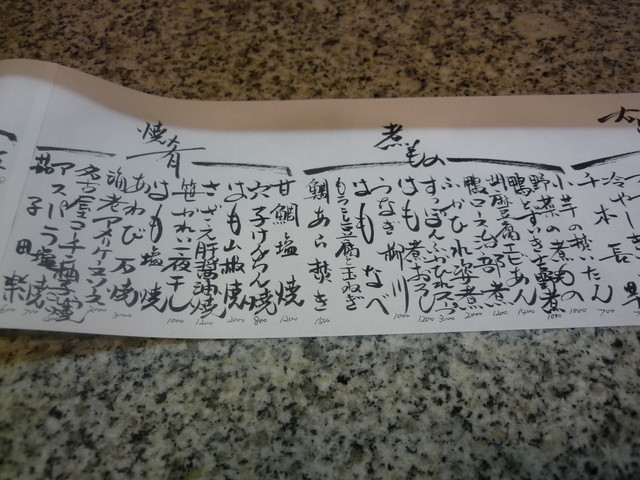 冷やし
千本長
煮もの
小芋の炊いたん
1000
野菜の煮もの
1000
鴨とずいき吉野煮
1400
胡麻豆腐エビあん
1200
鴨ロース治部煮
2000
ふかひれ姿煮
3000
1200
はも煮おろし
はも柳川
1000
はもなべ
もろこ豆腐玉ねぎ
鯛あら炊き
1500
焼肴
甘鯛塩焼
1200
穴子けんちん焼
800
はも山椒焼
2000
さざえ肝醤油焼
1200
笹かれい一夜干し
1000
はも塩焼
あわび石焼
3000
海老アメリケンソース
2000
名古屋コーチン
アスパラ塩焼
700
茄子田楽
600